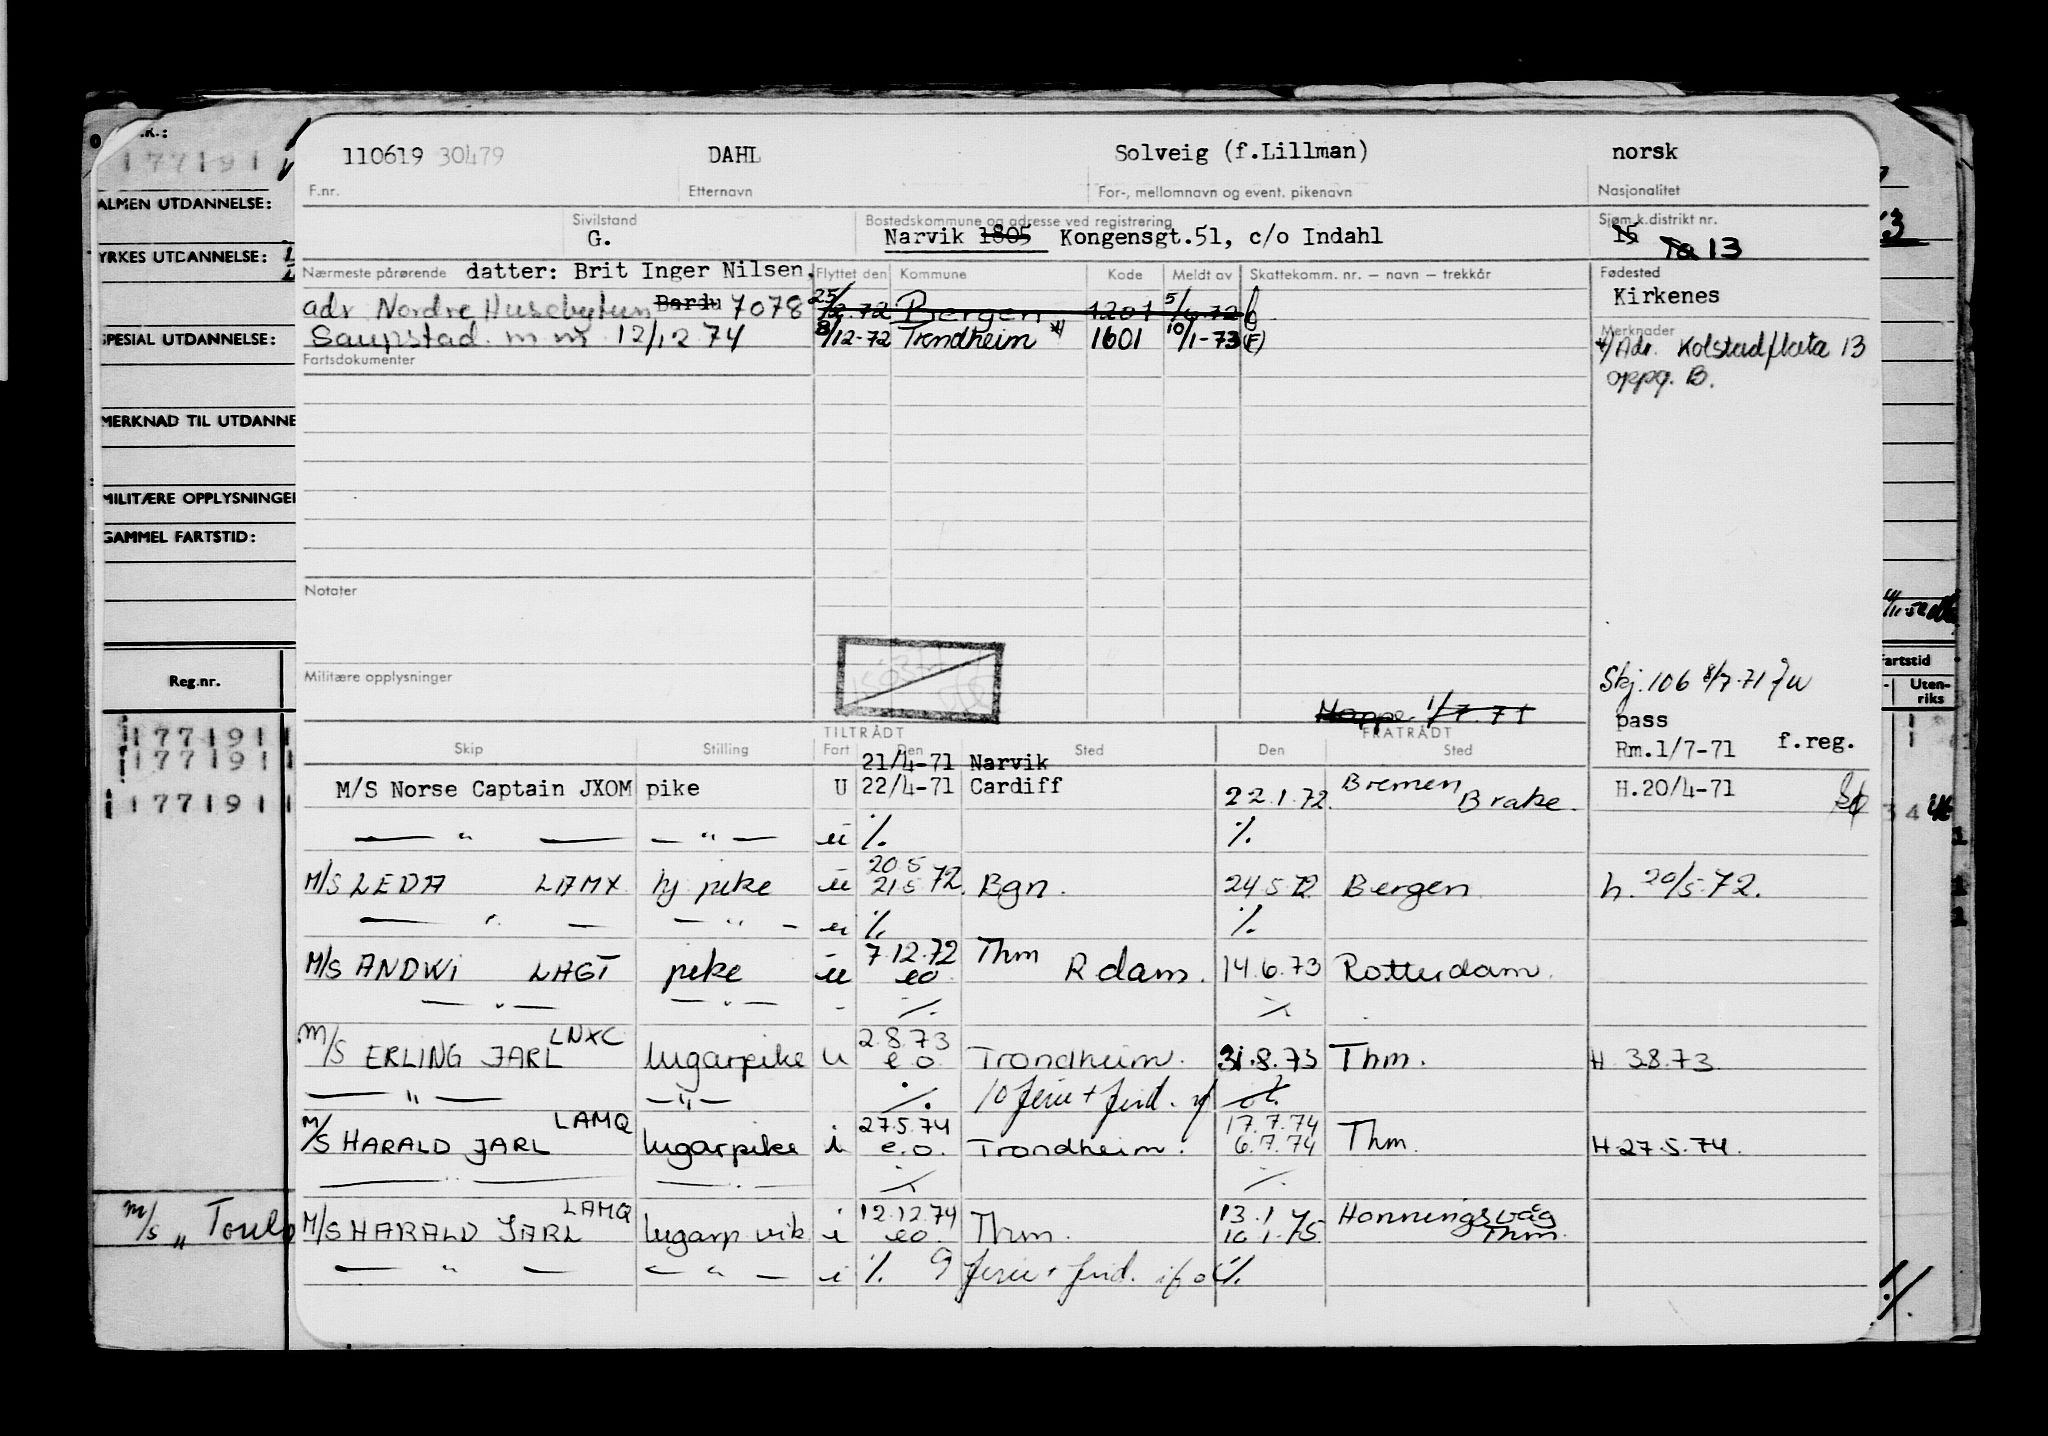 110619 30479 DAHL Solveig (f.Lillman) norsk
F.nr. Etternavn For-, mellomnavn og event. pikenavn Nasjonalitet
Sivilstand Bostedskommune og adresse ved registrering Sjøm.k.distrikt nr.
G. Narvik 1805 Kongensgt.51, c/o Indahl 15 13
Nærmeste pårørende datter: Brit Inger Nilsen. Flyttet den Kommune Kode Meldt av Skattekomm. nr. – navn – trekkår Fødested
Kirkenes
adr Nordre Husebytun Bardu 7078 25/ 72 Bergen 1201 5/6.72
Saupstad. m nr 12/12 74 8/12-72 Trondheim 1601 10/1-73 (F)
Merknader
Adr. Kolstadflata 13
oppg. B.
Fartsdokumenter
Notater
Militære opplysninger
Skj. 106 8/7.71
Mappe 1/7.71
pass
Rm.1/7-71 f.reg.
H.20/4-71
TILTRÅDT FRATRÅDT
Skip Stilling Fart Den Sted Den Sted
21/4-71 Narvik
M/S Norse Captain JXOM pike U 22/4-71 Cardiff 22.1.72. Bremen Brake.
— " — — " — u ./. ./.
20.5
M/S LEDA LAMX hj pike u 21.5 72. Bgn. 24.5.72 Bergen h. 20/5.72.
— " — — " — u ./. ./.
7.12.72 Thm
M/S ANDWI LHGT pike u eo R dam. 14.6.73 Rotterdam.
— " — — " — - ./. ./.
LNXC 2.8.73
M/S ERLING JARL lugarpike u e.o. Trondheim. 31.8.73 Thm. H 3.8.73
— " — — " — ./. 10 ferie + frid.
LAMQ 27.5.74 17.7.74
M/S HARALD JARL lugarpike i e.o. Trondheim. 6.7.74 Thm. H 27.5.74.
— " — — " — ./. ./.
LAMQ 12.12.74 13.1 Honningsvåg
M/S HARALD JARL lugarp vik i eo Thm. 16 1.75. Thm.
— " — — " — i ./. 9 ferie + frid. ./.
177191
ALMEN UTDANNELSE:
YRKES UTDANNELSE:
SPESIAL UTDANNELSE:
MERKNAD TIL UTDANNE
MILITÆRE OPPLYSNINGER
GAMMEL FARTSTID:
Reg.nr.
177191
177191
177191
m/s "
Fartstid
Uten-
riks
34